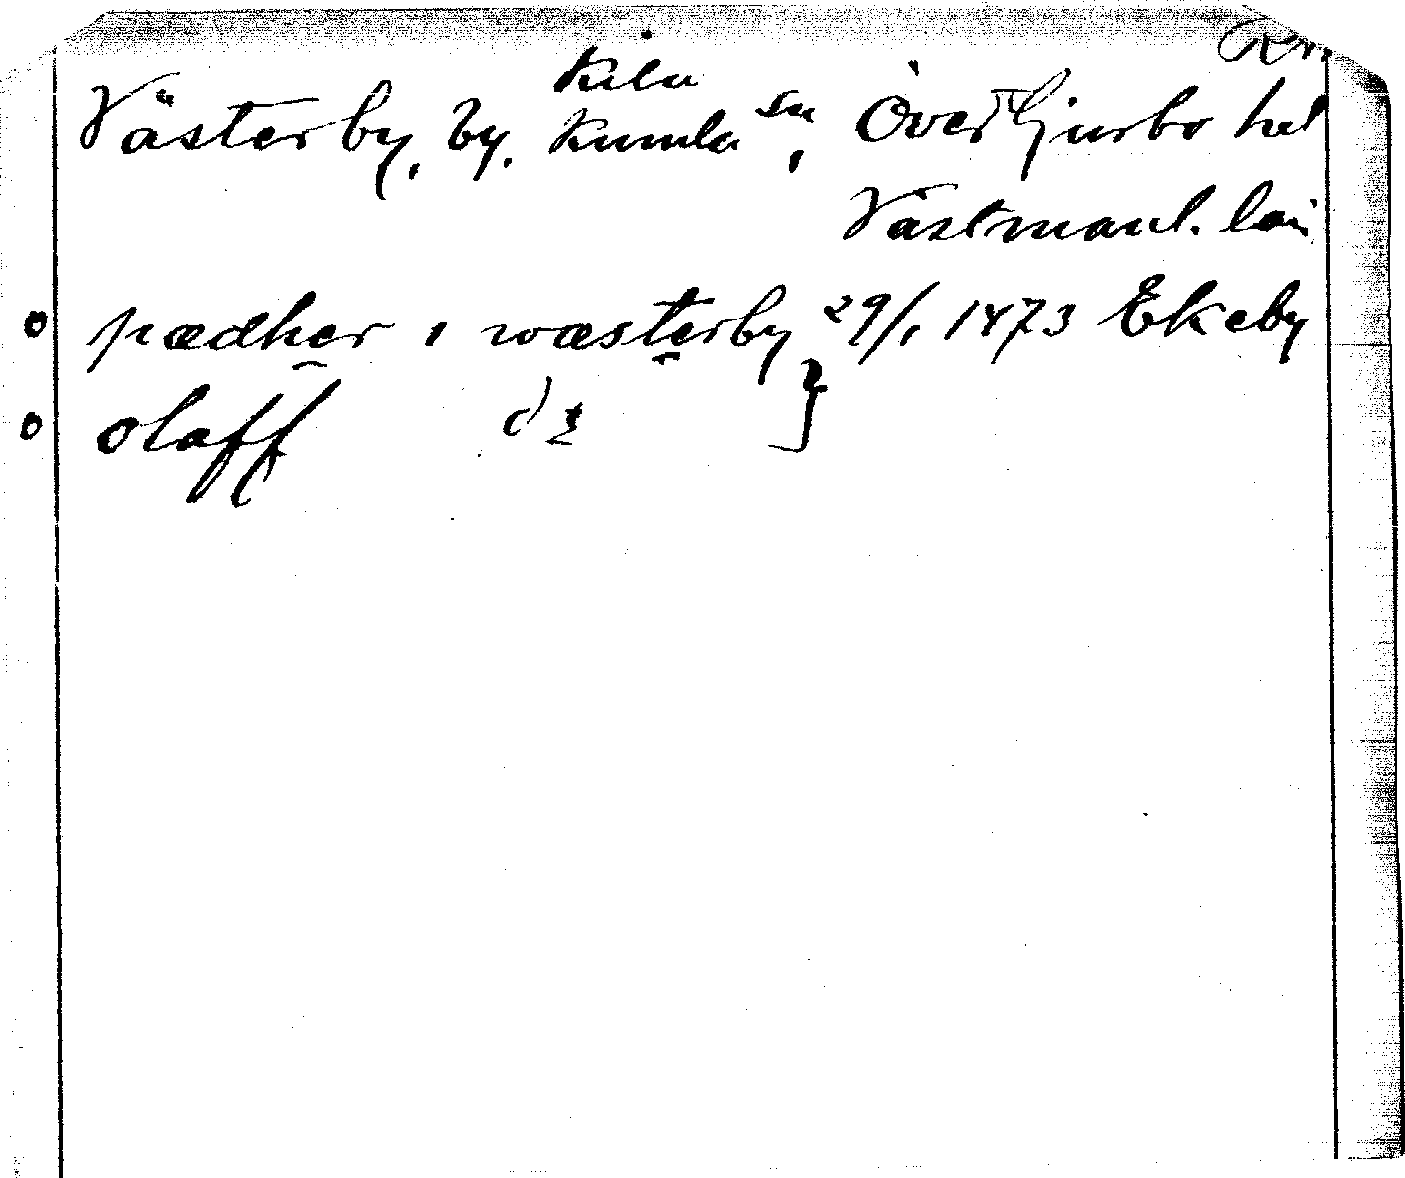 Kila
Västerby, by. Kumla sn, Övertjurbo hd
Västmanl. län
pædher i wæsterby 29/1 1473 Ekeby
olaff do }